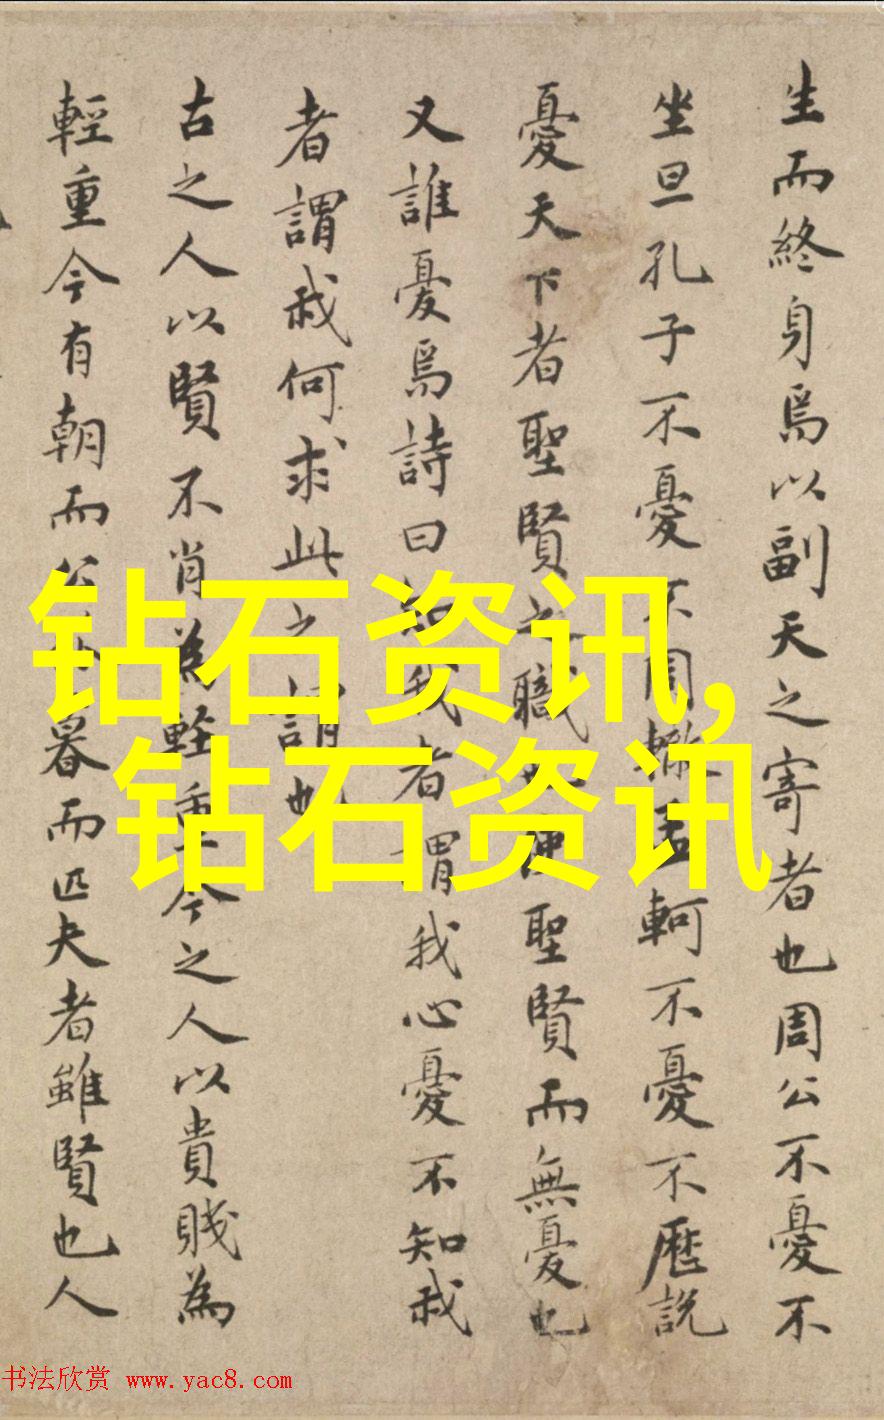 生而終身焉以副天之寄者也周公不憂不
坐旦孔子不憂不周轍孟軻不憂不歷說
憂天下者聖賢之職也使聖賢而無憂也
又誰憂焉詩曰知我者謂我心憂不知我
者謂我何求此之謂也
古之人以賢不肖為輕重今之人以貴賤為
輕重今有朝而公暮而匹夫者雖賢也人
钻石资讯,
钻石资讯
书法欣赏 www.yac8.com